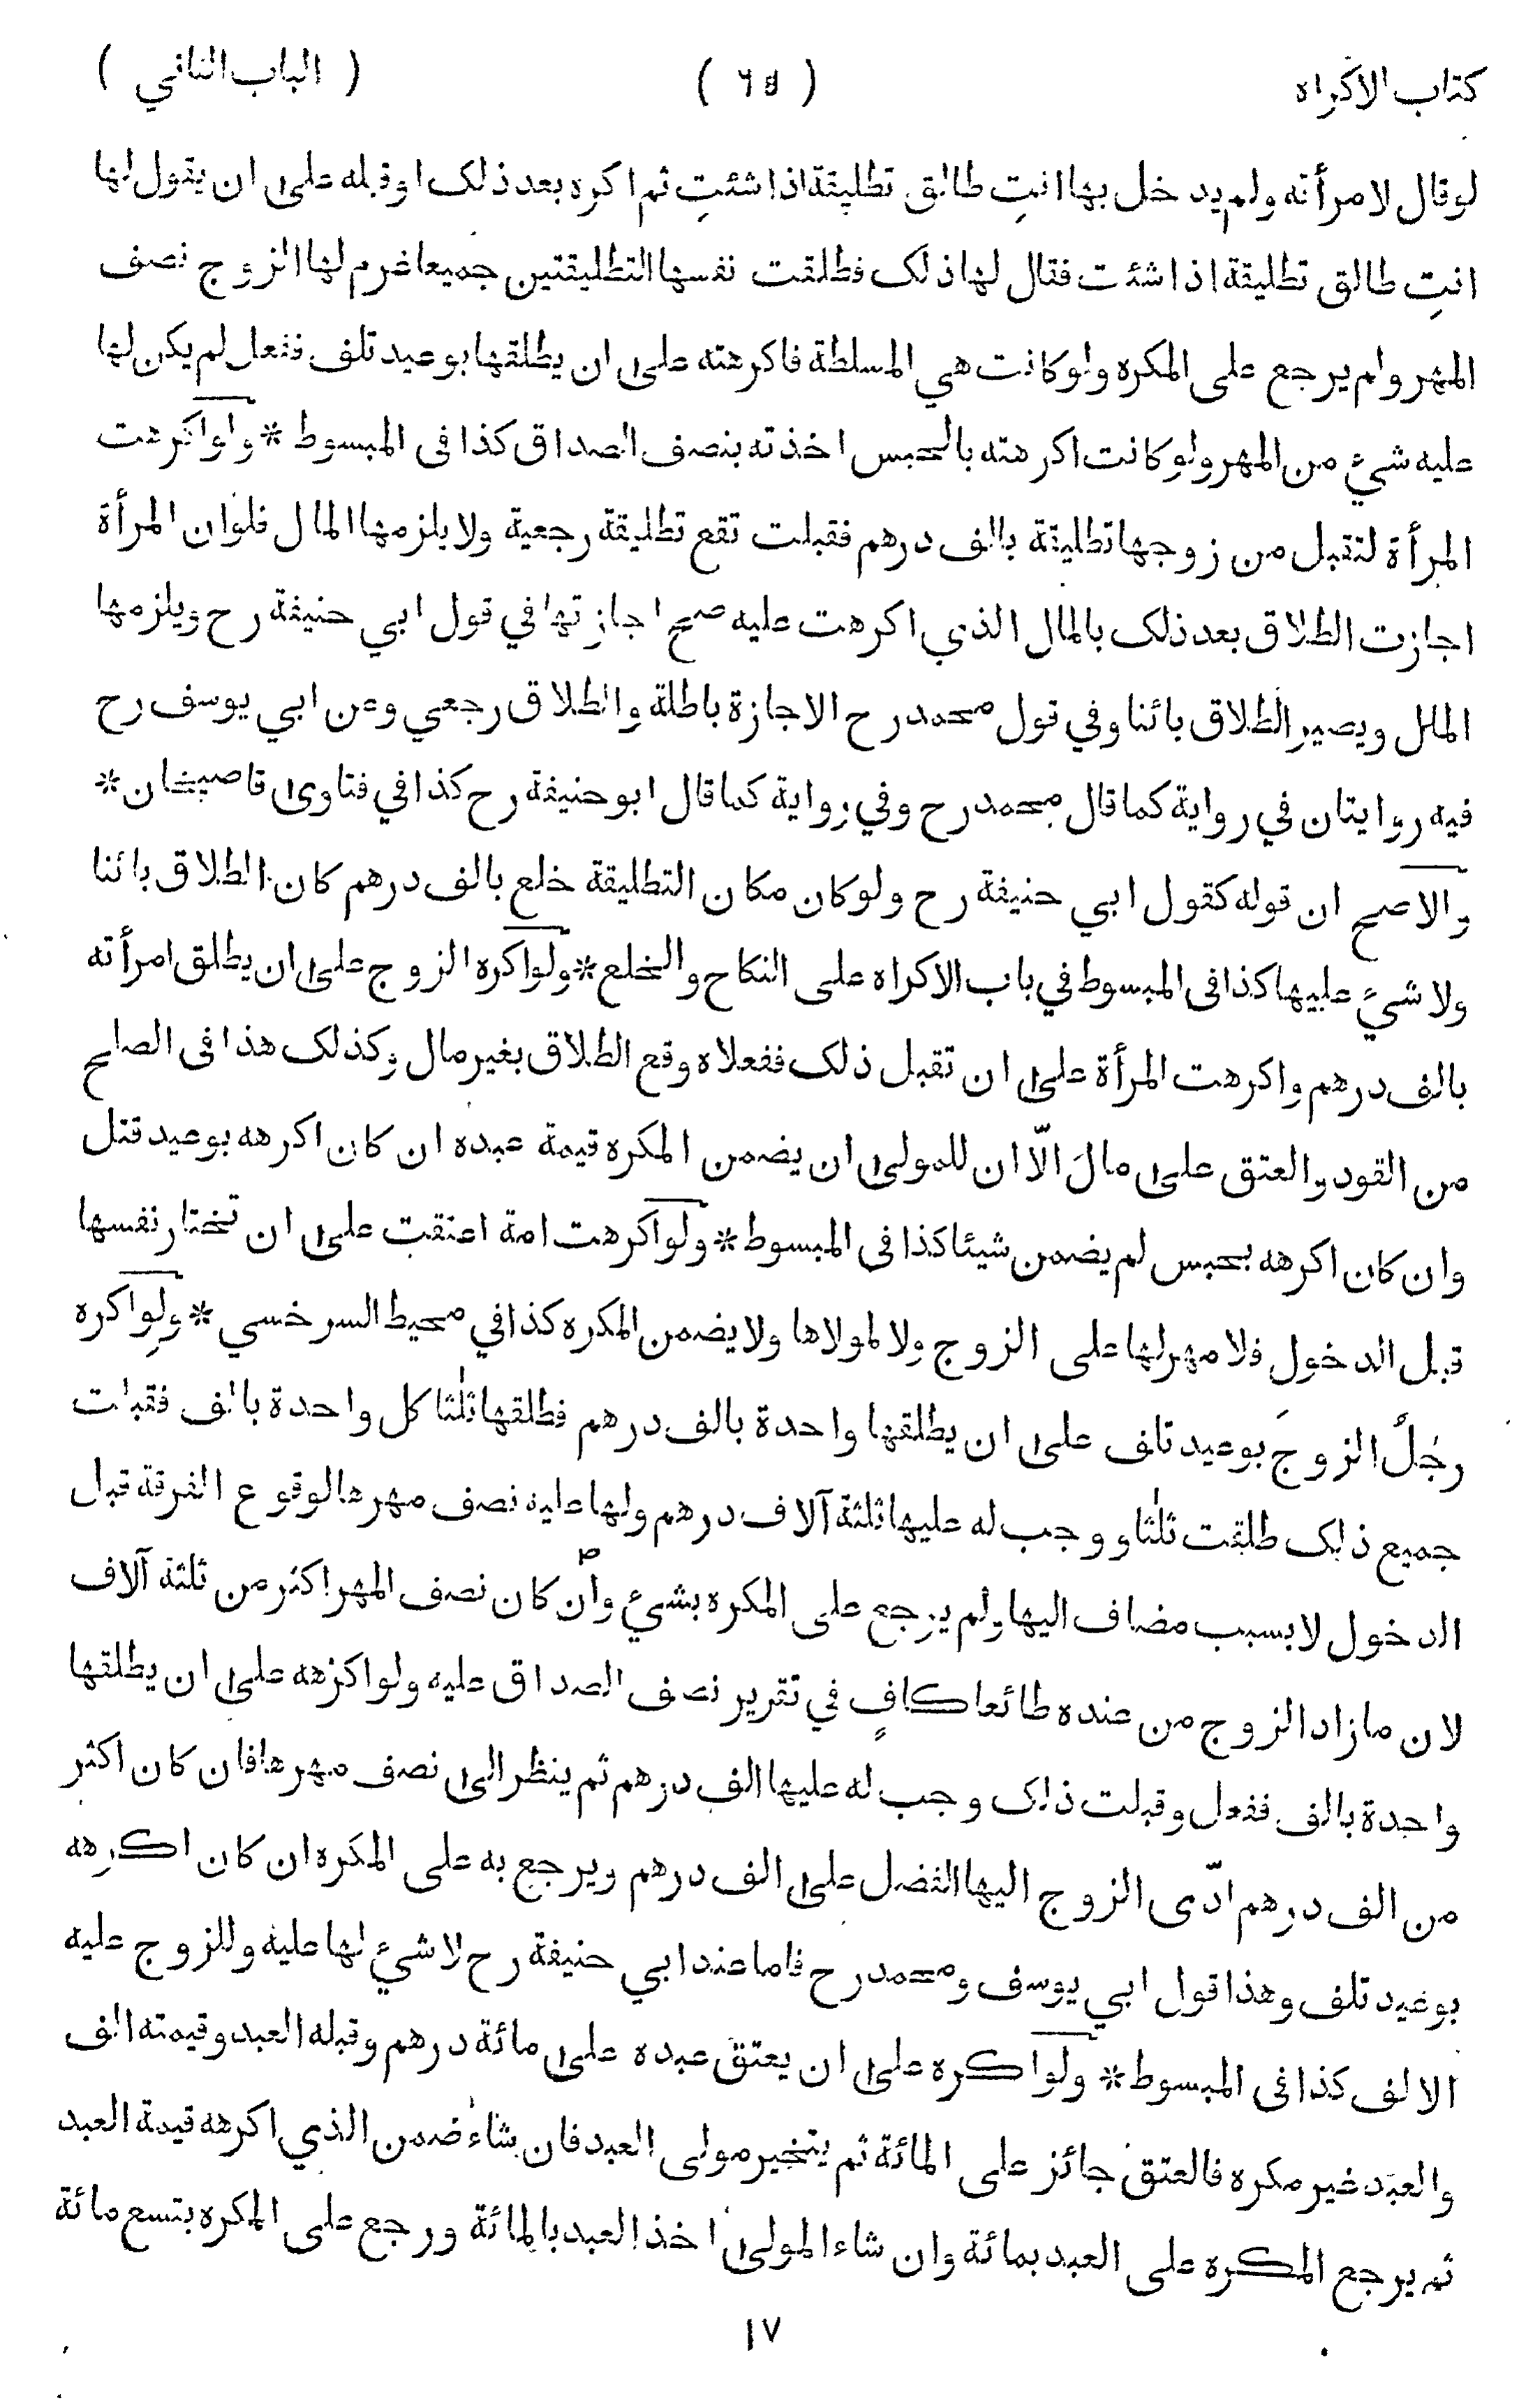 كتاب الاكراه ( ٦٥ ) ( الباب الثاني )
لوقال لامرأته ولم يدخل بها انتِ طالق تطليقة اذا شئتِ ثم اكره بعد ذلک او قبله علی ان يقول لها
انتِ طالق تطليقة اذا شئت فقال لها ذلک فطلقت نفسها التطليقتين جميعا غرم لها الزوج نصف
المهر ولم يرجع علی المكره ولو كانت هي المسلطة فاكرهته علی ان يطلقها بوعيد تلف ففعل لم يكن لها
عليه شيء من المهر ولو كانت اكرهته بالحبس اخذته بنصف الصداق كذا فی المبسوط * ولو اكرهت
المرأة لتقبل من زوجها تطليقة بالف درهم فقبلت تقع تطليقة رجعية ولا يلزمها المال فلو ان المرأة
اجازت الطلاق بعد ذلک بالمال الذي اكرهت عليه صح اجازتها في قول ابي حنيفة رح ويلزمها
المال ويصير الطلاق بائنا وفي قول محمد رح الاجازة باطلة والطلاق رجعي وعن ابي يوسف رح
فيه روايتان في رواية كما قال محمد رح وفي رواية كما قال ابو حنيفة رح كذا في فتاوی قاضيخان *
والاصح ان قوله كقول ابي حنيفة رح ولو كان مكان التطليقة خلع بالف درهم كان الطلاق بائنا
ولا شيء عليها كذا فی المبسوط في باب الاكراه علی النكاح والخلع * ولو اكره الزوج علی ان يطلق امرأته
بالف درهم واكرهت المرأة علی ان تقبل ذلک ففعلاه وقع الطلاق بغير مال وكذلک هذا فی الصلح
من القود والعتق علی مال الّا ان للمولی ان يضمن المكره قيمة عبده ان كان اكرهه بوعيد قتل
وان كان اكرهه بحبس لم يضمن شيئا كذا فی المبسوط * ولو اكرهت امة اعتقت علی ان تختار نفسها
قبل الدخول فلا مهر لها علی الزوج ولا لمولاها ولا يضمن المكره كذا في محيط السرخسي * ولو اكره
رجلٌ الزوجَ بوعيد تلف علی ان يطلقها واحدة بالف درهم فطلقها ثلٰثا كل واحدة بالف فقبلت
جميع ذلک طلقت ثلٰثا ووجب له عليها ثلثة آلاف درهم ولها عليه نصف مهرها لوقوع الفرقة قبل
الدخول لا بسبب مضاف اليها ولم يرجع علی المكره بشيء وان كان نصف المهر اكثر من ثلثة آلاف
لان ما زاد الزوج من عنده طائعا كافٍ في تقرير نصف الصداق عليه ولو اكرهه علی ان يطلقها
واحدة بالف ففعل وقبلت ذلک وجب له عليها الف درهم ثم ينظر الی نصف مهرها فان كان اكثر
من الف درهم ادّی الزوج اليها الفضل علی الف درهم ويرجع به علی المكره ان كان اكرهه
بوعيد تلف وهذا قول ابي يوسف ومحمد رح فاما عند ابي حنيفة رح لا شيء لها عليه وللزوج عليه
الالف كذا فی المبسوط * ولو اكره علی ان يعتق عبده علی مائة درهم وقبله العبد وقيمته الف
والعبد غير مكره فالعتق جائز علی المائة ثم يتخير مولی العبد فان شاء ضمن الذي اكرهه قيمة العبد
ثم يرجع المكره علی العبد بمائة وان شاء المولی اخذ العبد بالمائة ورجع علی المكره بتسع مائة
١٧